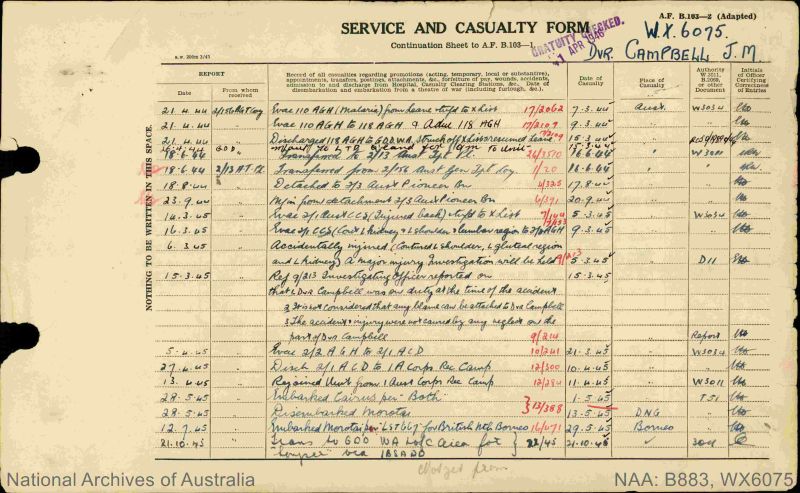 SERVICE AND CASUALTY FORM
A.F. B.103—2 (Adapted)
Continuation Sheet to A.F. B.103—1
GRATUITY CHECKED.
APR 1946
W.X. 6075.
DVR. CAMPBELL J.M.
NOTHING TO BE WRITTEN IN THIS SPACE.
REPORT
Date
From whom received
Record of all casualties regarding promotions (acting, temporary, local or substantive), appointments, transfers, postings, attachments, &c., forfeiture of pay, wounds, accidents, admission to and discharge from Hospital, Casualty Clearing Stations, &c. Date of disembarkation and embarkation from a theatre of war (including furlough, &c.).
Date of Casualty
Place of Casualty
Authority W.3011, B.2069, or other Document
Initials of Officer Certifying Correctness of Entries
21.4.44 Evac 110 AGH (Malaria) from Leave & tsfd to X List 17/2062 7.3.44 Aust. W3034
21.4.44 Evac 110 AGH to 118 AGH & Adm 118 AGH 17/2109 9.3.44
21.4.44 Discharged 118 AGH to GDD WA, Struck off X List resumed Leave 15.3.44
18.6.44 Transferred to 2/13 Aust Tpt Pl. 26/3570 16.6.44 W 3011
18.6.44 2/13 A T Pl Transferred from 2/156 Aust Gen Tpt Coy 1/20 16.6.44
18.8.44 Detached to 2/3 Aust Pioneer Bn 4/325 17.8.44
23.9.44 M/in from detachment 2/3 Aust Pioneer Bn 6/391 20.9.44
14.3.45 Evac 2/1 Aust CCS (Injured back) & tsfd to X List 5.3.45 W3034
16.3.45 Evac 2/1 CCS (Cont L kidney & L shoulder & lumbar region to 2/2 AGH 9.3.45
6.3.45 Accidentally injured (Contused L shoulder, L gluteal region
and L kidney) A major injury Investigation will be held 9/213 5.3.45 D11
15.3.45 Ref 9/213 Investigating Officer reported on 15.3.45
that 1. Dvr Campbell was on duty at the time of the accident
2. It is not considered that any blame can be attached to Dvr Campbell
3. The accident & injury were not caused by any neglect on the
part of Dvr Campbell 9/214 Report
5.4.45 Evac 2/2 AGH to 2/1 ACD 10/241 21.3.45 W3034
27.4.45 Disch 2/1 ACD to 1 A Corps Rec Camp 12/300 10.4.45
13.4.45 Rejoined Unit from 1 Aust Corps Rec Camp 12/284 11.4.45 W3011
28.5.45 Embarked Cairns per "Both" 1.5.45 T51
28.5.45 Disembarked Morotai 13/388 13.5.45 DNG
12.7.45 Embarked Morotai per "LST 667" for British Nth Borneo 16/471 29.5.45 Borneo
21.10.45 Trans to GDD WA L of C Area for 22/45 21.10.45 3011
National Archives of Australia
NAA: B883, WX6075